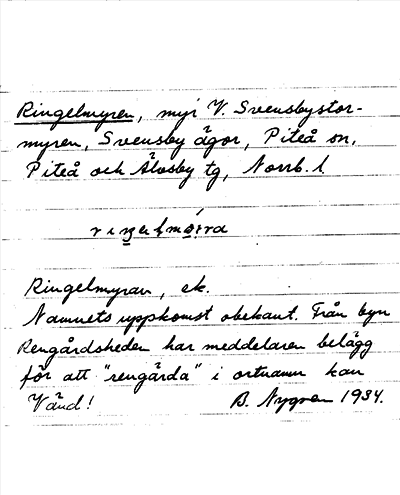 Ringelmyren, myr V. Svensbystor-
myren, Svensby ägor, Piteå sn,
Piteå och Älvsby tg, Norrb. l
Ringelmyran, ek.
Namnets uppkomst obekant. Från byn
Rengårdsheden har meddelaren belägg
för att "rengårda" i ortnamn kan
Vänd! B. Nygren 1934.